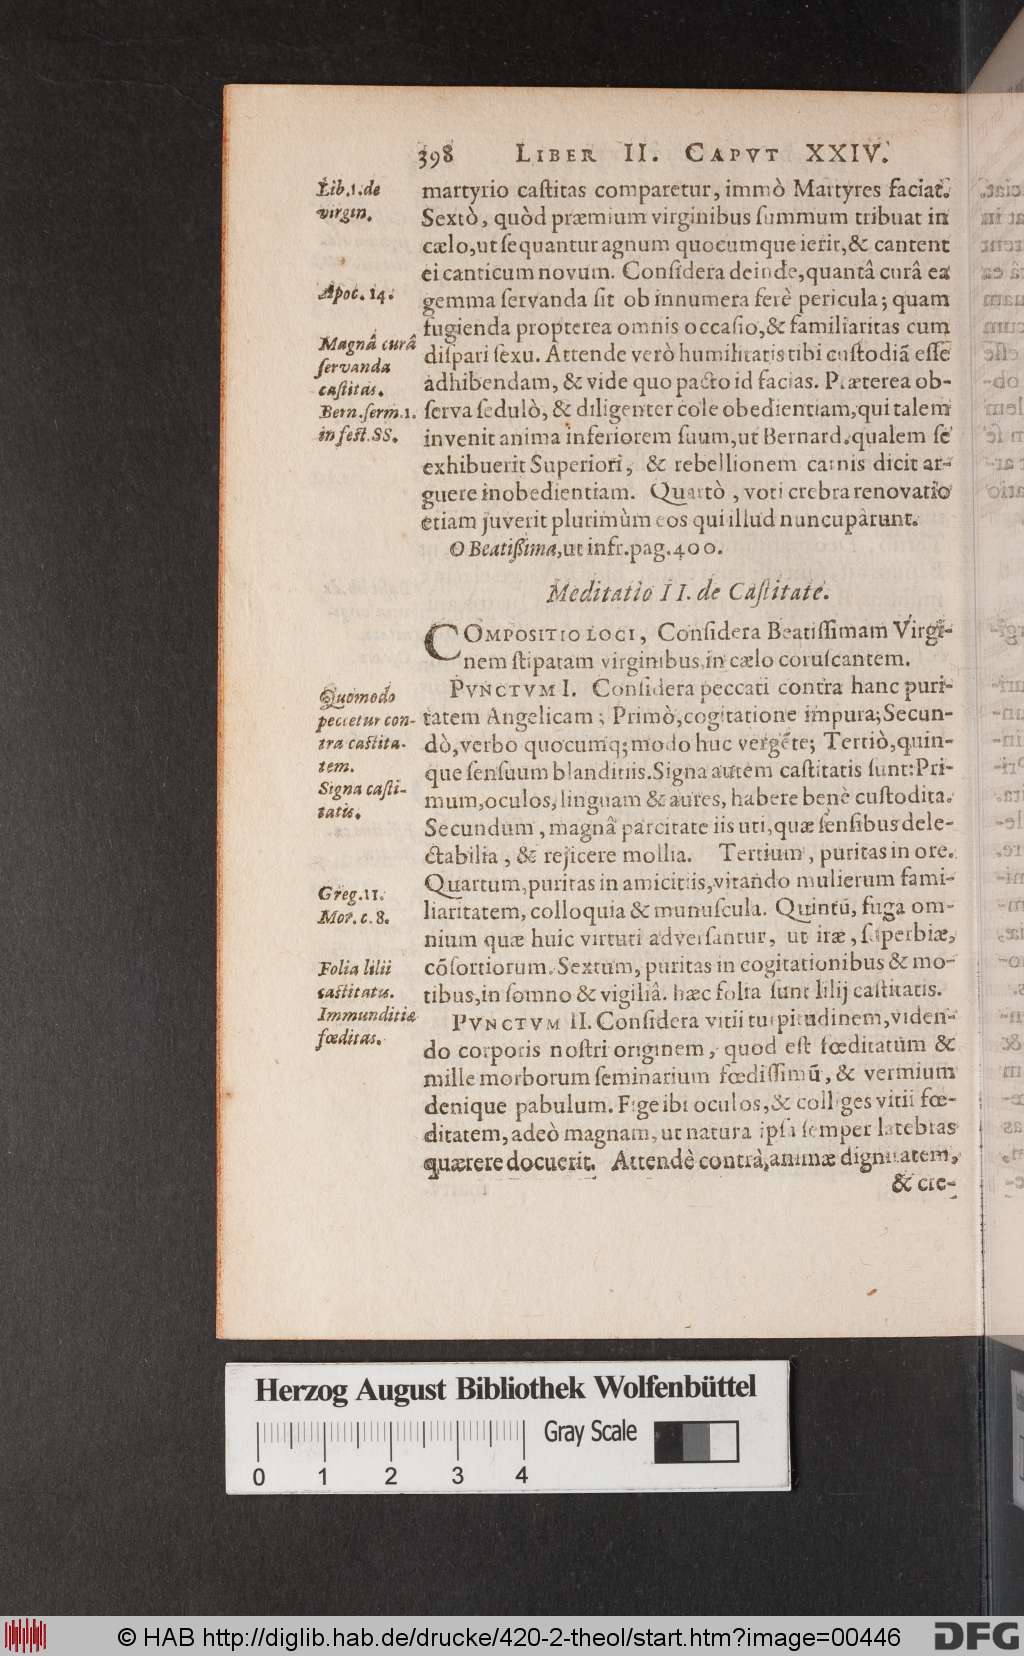 398 LIBER II. CAPVT XXIV.
Lib.1.de
virgin.
Apoc. 14.
Magnâ curâ
ſervanda
caſtitas.
Bern.ſerm.1.
in feſt.SS.
martyrio caſtitas comparetur, immò Martyres faciat.
Sextò, quòd præmium virginibus ſummum tribuat in
cælo, ut ſequantur agnum quocumque ierit, & cantent
ei canticum novum. Conſidera deinde, quantâ curâ ea
gemma ſervanda ſit ob innumera ferè pericula; quam
fugienda propterea omnis occaſio, & familiaritas cum
diſpari ſexu. Attende verò humilitatis tibi cuſtodiã eſſe
adhibendam, & vide quo pacto id facias. Præterea ob-
ſerva ſedulò, & diligenter cole obedientiam, qui talem
invenit anima inferiorem ſuum, ut Bernard. qualem ſe
exhibuerit Superiori, & rebellionem carnis dicit ar-
guere inobedientiam. Quartò, voti crebra renovatio
etiam juverit plurimùm eos qui illud nuncuparunt.
O Beatiſſima, ut infr. pag. 400.
Meditatio II. de Caſtitate.
COMPOSITIO LOCI, Conſidera Beatiſſimam Virgi-
nem ſtipatam virginibus, in cælo coruſcantem.
Quomodo
peccetur con-
tra caſtita-
tem.
Signa caſti-
tatis.
Greg.11.
Mor. c. 8.
Folia lilii
caſtitatis.
Immunditiæ
fœditas.
PVNCTVM I. Conſidera peccati contra hanc puri-
tatem Angelicam; Primò, cogitatione impura; Secun-
dò, verbo quocumq; modo huc vergẽte; Tertiò, quin-
que ſenſuum blanditiis. Signa autem caſtitatis ſunt: Pri-
mum, oculos, linguam & aures, habere benè cuſtodita.
Secundum, magnâ parcitate iis uti, quæ ſenſibus dele-
ctabilia, & rejicere mollia. Tertium, puritas in ore.
Quartum, puritas in amicitiis, vitando mulierum fami-
liaritatem, colloquia & munuſcula. Quintũ, fuga om-
nium quæ huic virtuti adverſantur, ut iræ, ſuperbiæ,
cõſortiorum. Sextum, puritas in cogitationibus & mo-
tibus, in ſomno & vigiliâ. hæc folia ſunt lilij caſtitatis.
PVNCTVM II. Conſidera vitii turpitudinem, viden-
do corporis noſtri originem, quod eſt fœditatum &
mille morborum ſeminarium fœdiſſimũ, & vermium
denique pabulum. Fige ibi oculos, & colliges vitii fœ-
ditatem, adeò magnam, ut natura ipſa ſemper latebras
quærere docuerit. Attendè contrà, animæ dignitatem,
& cre-
Herzog August Bibliothek Wolfenbüttel
Gray Scale
0 1 2 3 4
© HAB http://diglib.hab.de/drucke/420-2-theol/start.htm?image=00446
DFG